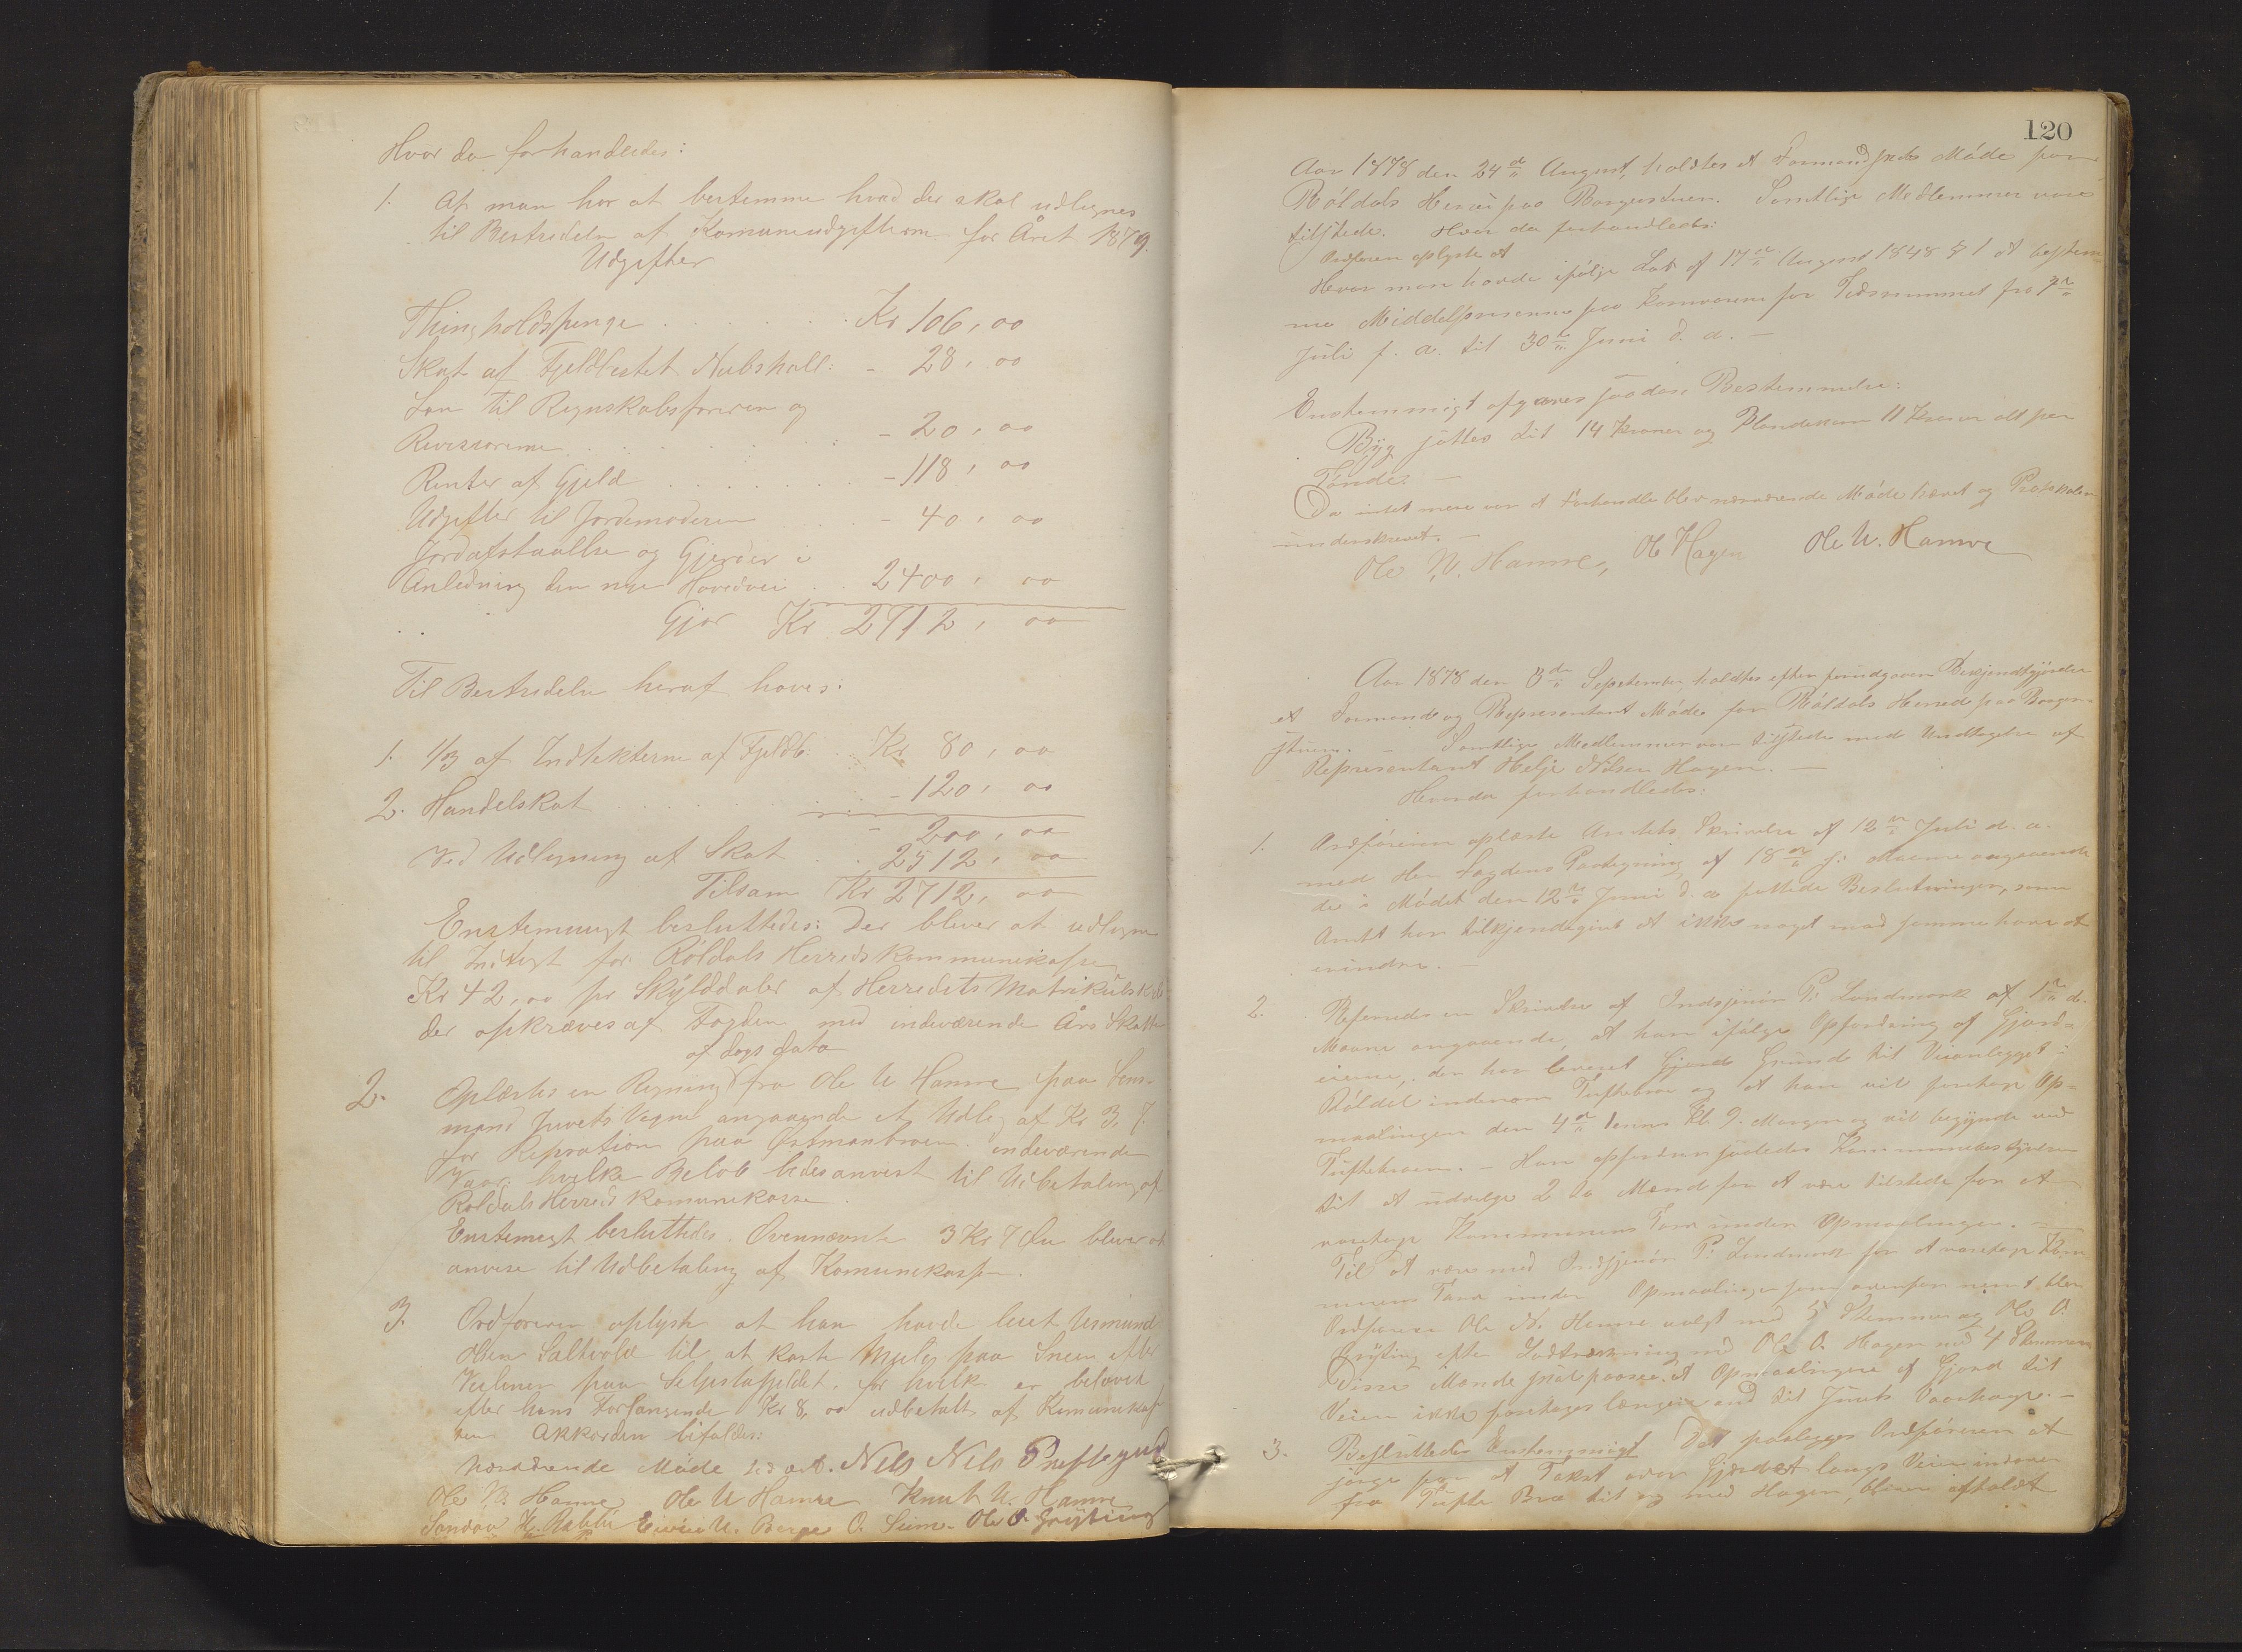 Hvor da forhandledes:
1. At man har at bestemme hvad der skal udlignes
til Bestridelse af Komuneudgifterne for Året 1879.
Udgifter
Thingholdspenge . . . . . . Kr 106,00
Skat af Fjeldbestet Nubshall: - 28,00
Løn til Regnskabsføreren og
Revisorerne . . . . . . - 20,00
Renter af Gjeld . . . . . . - 118,00
Udgifter til Jordemoderen . . - 40,00
Jordafstaaelse og Gjerder i
Anledning den nye Hovedvei . . 2400,00
Gjør Kr 2712,00
Til Bestridelse heraf haves:
1. 1/3 af Indtekterne af Fjeldb: . . Kr 80,00
2. Handelskat . . . . . . - 120,00
- 200,00
Ved Udligning af Skat . . 2512,00
Tilsam Kr 2712,00
Enstemmigt besluttedes: Der bliver at udligne
til Indtegt for Røldals Herreds kommunekasse
Kr 42,00 pr Skylddaler af Herredets
der opkræves af Fogden med indeværende Års Skatter
af dags dato
2. Oplæstes en Regning fra Ole U Hamre paa Lens-
mand Juvets Vegne angaaende et Udleg af Kr 3,7.
for Repration paa indeværende
Vaar, hvilke Beløb bedes anvist til Udbetaling af
Røldals Herreds Komunekasse.
Enstemigt besluttedes. Ovennævnte 3 Kr 7 Øre bliver at
anvise til Udbetaling af Komunekassen.
3. Ordføreren oplyste at han havde leiet Asmund
Olsen Saltvold til at kaste Muld paa Sneen efter
Veilinen paa Seljestafjeldet, for hvilke er belovet
efter hans Forlangende Kr 8,00 udbetalt af Komunekas-
sen Akkorden bifaldes:
Nærværende Møde hævet. Nels Nels Prestegard
Ole N. Hamre Ole U Hamre Knut N. Hamre
Sondov H. Rabbe Eivin N. Berge O. Seim. Ole O. Grytting
120
Aar 1878 den 24de August, holdtes et Formandskabs Møde for
Røldals Herred paa Borgerstuen. Samtlige Medlemmer vare
tilstede. Hvor da forhandledes:
Ordføreren oplyste at
Hvor man havde ifølge Lov af 17de August 1848 § 1 at bestem-
me Middelpriserne paa Kornvarene for Tidsrummet fra 1ste
Juli f. a. til 30te Juni d. a. —
Enstemmigt afgaves saadan Bestemmelse:
Byg sættes til 14 Kroner og Blandekorn 11 Kroner alt per
Tønde. —
Da intet mere var at Forhandle blev nærværende Møde hævet og Protokolen
underskrevet. —
Ole N. Hamre, Ol Hagen Ole U. Hamre
Aar 1878 den 3de September, holdtes efter forudgaaen Bekjendtgjørelse
et Formands og Representant Møde for Røldals Herred paa Borger-
stuen. — Samtlige Medlemmer var tilstede med Undtagelse af
Representant Helje Nilsen Hagen. —
Hvorda forhandledes:
1. Ordføreren oplæste Amtets Skrivelse af 12te Juli d. a.
med Her Fogdens Paategning af 18de s: Maane angaaende
de i Mødet den 12te Juni d. a fattede Beslutninger, som
Amtet har tilkjendegivet at ikke noget mod samme haves at
erindre. —
2. Refereredes en Skrivelse af Indsjenør P: Landmark af 1ste d.
Maane angaaende, at han ifølge Opfordring af Gjord=
eierne, der har leveret Gjord Grund til Veianlegget i
Røldal indenom Tuftebroe og at han vil foretage Op=
maalingen den 4de dennes Kl 9. Morgen og vil begynde ved
Tuftebroen. — Han opfordrer saaledes Kommunebestyrelsen
til at udvelge 2 to Mænd for at være tilstede for at
varetage Kommunens Tarv under Opmaalingen. —
Til at være med Indsjenør P: Landmark for at varetage Kom-
munens Tarv under Opmaalingen som ovenfor nevnt blev
Ordføreren Ole N. Hamre valgt med 5 Stemmer og Ole O:
Grytting efter Lodtrækning med Ole O. Hagen med 4 Stemmer
Disse Mænde skal paasee, at Opmaalingene af Gjord til
Veien ikke foretages længere end til Juvets Vaarhage. —
3. Besluttedes Enstemmigt Det paalegges Ordføreren at
sørge for at Takst over Gjærdet langs Veien indover
fra Tufte Bro til og med Hagen, bliver afholdt